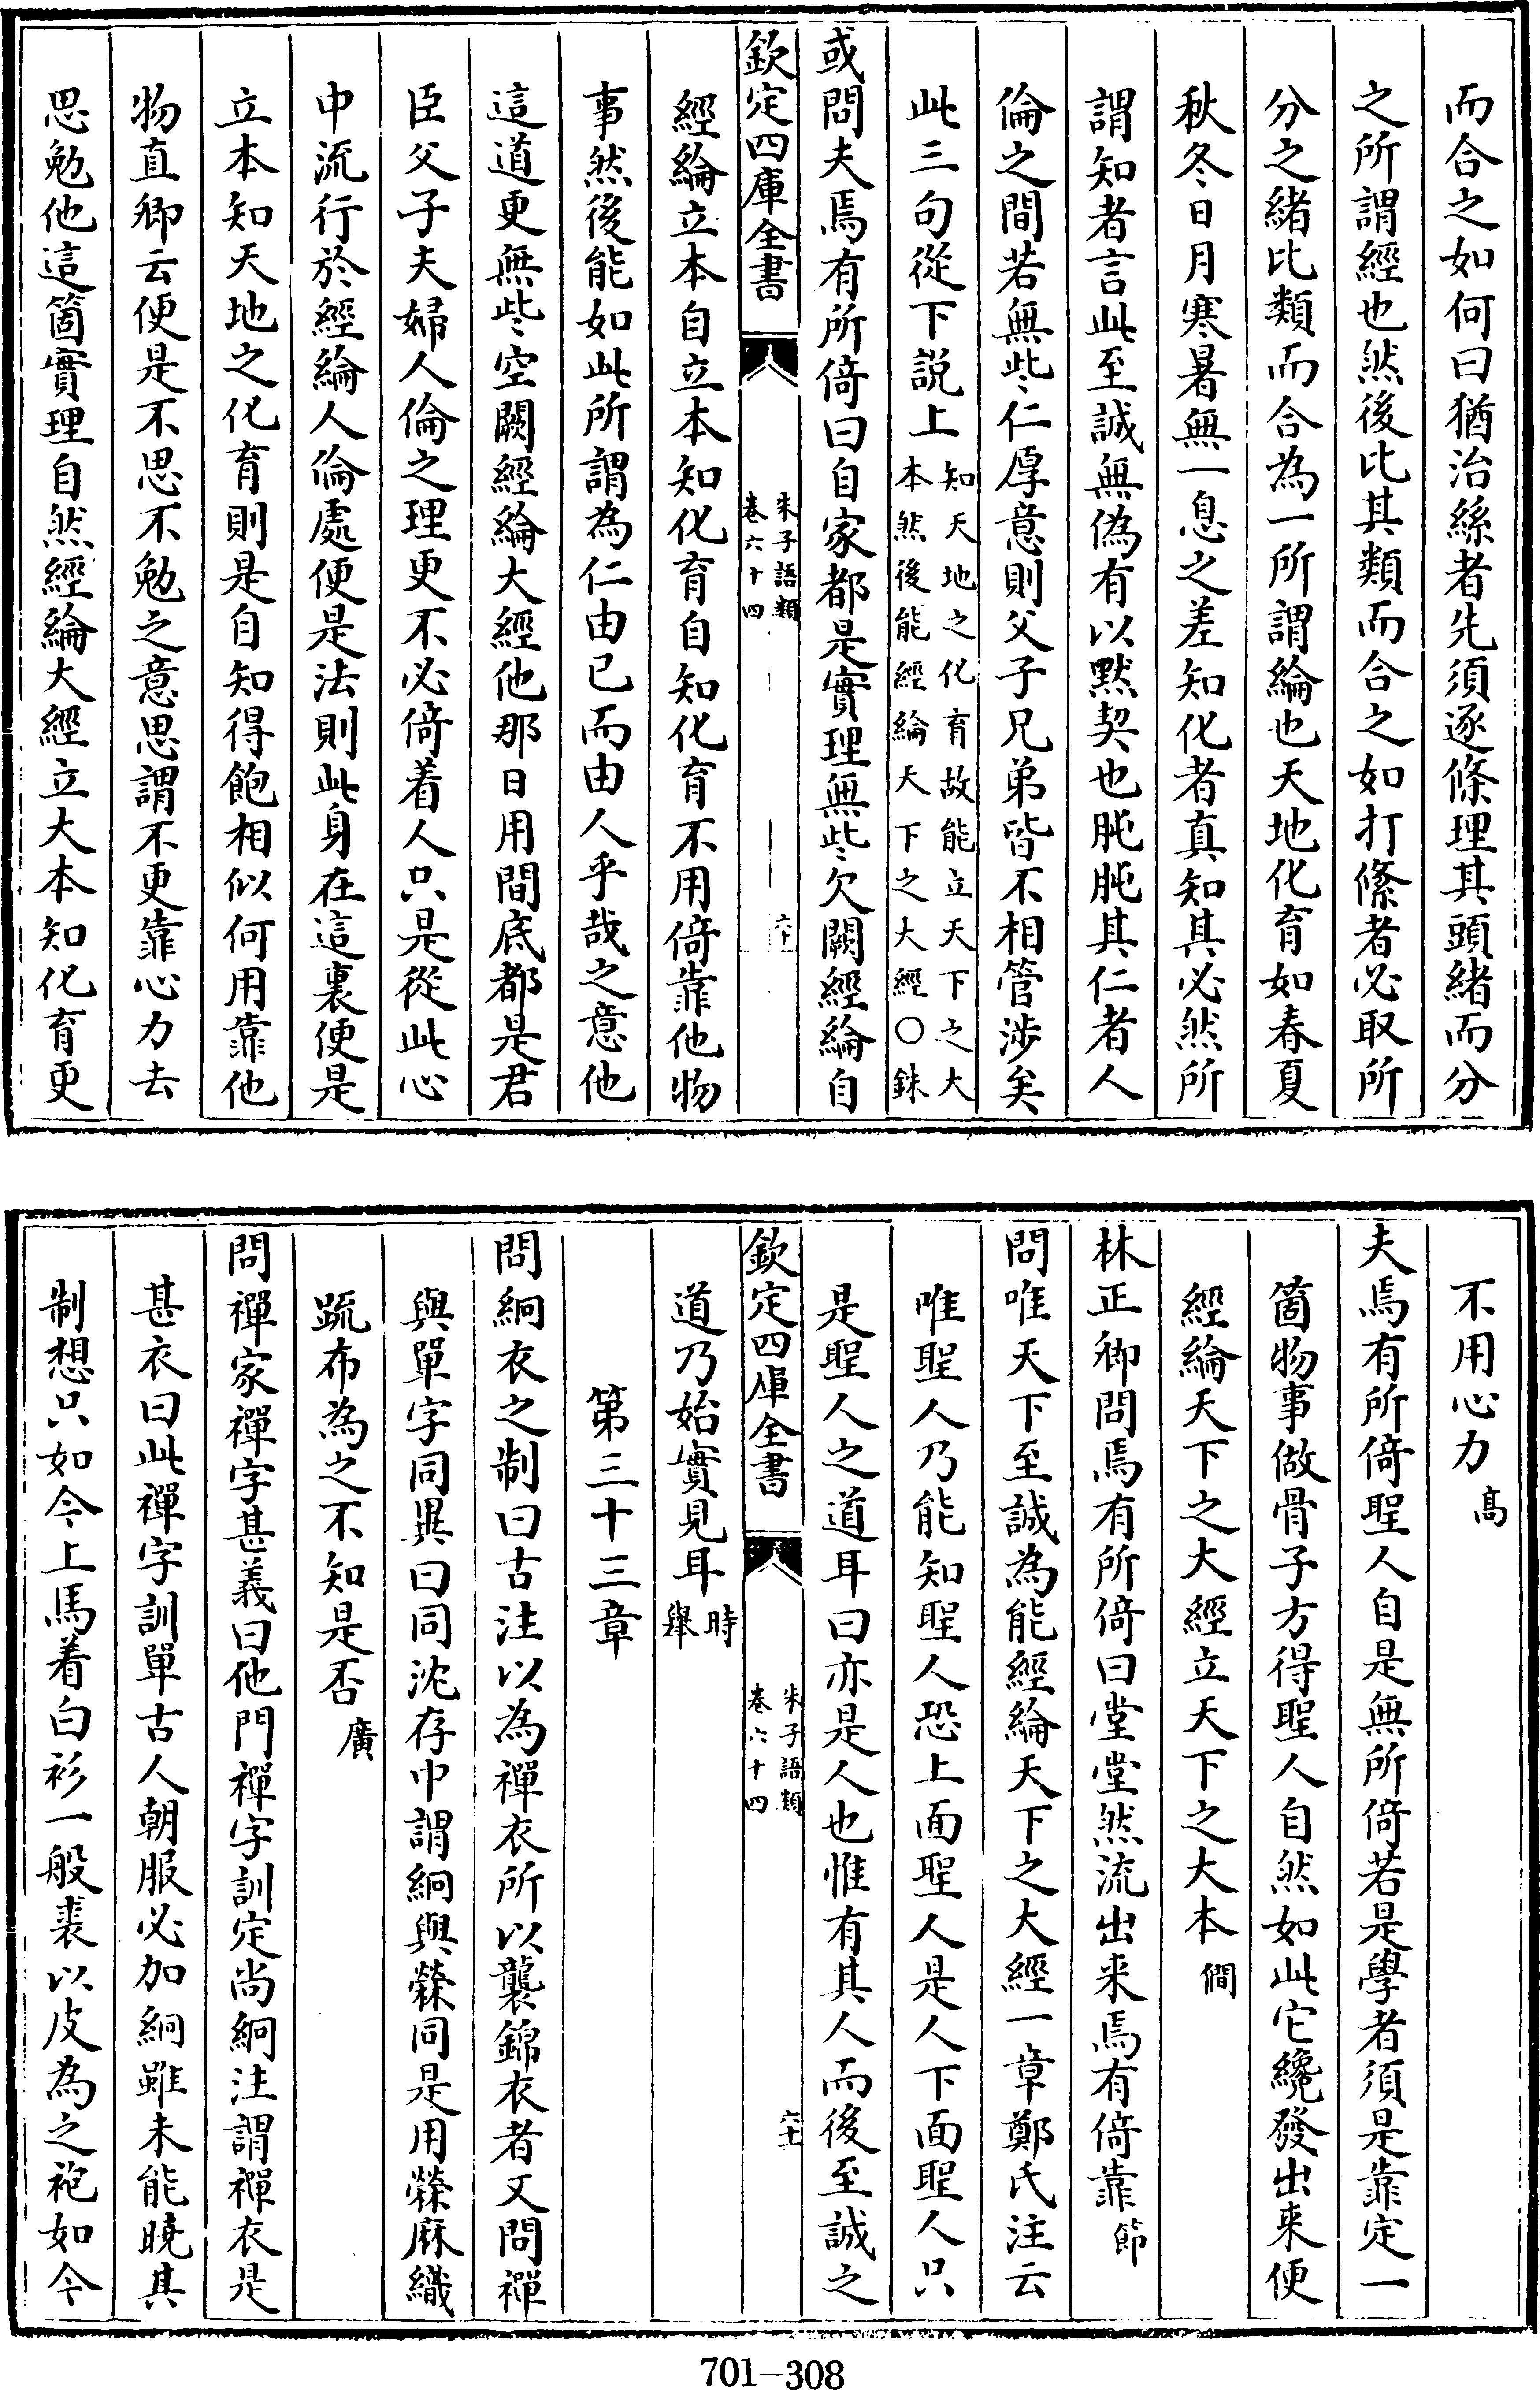 而合之如何曰猶治絲者先須逐條理其頭緒而分
之所謂經也然後比其類而合之如打絛者必取所
分之緒比類而合為一所謂綸也天地化育如春夏
秋冬日月寒暑無一息之差知化者真知其必然所
謂知者言此至誠無偽有以黙契也肫肫其仁者人
倫之間若無些仁厚意則父子兄弟皆不相管涉矣
此三句從下説上知天地之化育故能立天下之大
本然後能經綸天下之大經〇銖
或問夫焉有所倚曰自家都是實理無些欠闕經綸自
欽定四庫全書
朱子語類
卷六十四
六十
經綸立本自立本知化育自知化育不用倚靠他物
事然後能如此所謂為仁由已而由人乎哉之意他
這道更無些空闕經綸大經他那日用間底都是君
臣父子夫婦人倫之理更不必倚着人只是從此心
中流行於經綸人倫處便是法則此身在這裏便是
立本知天地之化育則是自知得飽相似何用靠他
物直卿云便是不思不勉之意思謂不更靠心力去
思勉他這箇實理自然經綸大經立大本知化育更
不用心力高
夫焉有所倚聖人自是無所倚若是學者須是靠定一
箇物事做骨子方得聖人自然如此它纔發出来便
經綸天下之大經立天下之大本僴
林正卿問焉有所倚曰堂堂然流出来焉有倚靠節
問唯天下至誠為能經綸天下之大經一章鄭氏注云
唯聖人乃能知聖人恐上面聖人是人下面聖人只
是聖人之道耳曰亦是人也惟有其人而後至誠之
欽定四庫全書
朱子語類
卷六十四
六十一
道乃始實見耳時
舉
第三十三章
問絅衣之制曰古注以為禪衣所以襲錦衣者又問禪
與單字同異曰同沈存中謂絅與褮同是用褮麻織
疏布為之不知是否廣
問禪家禪字甚義曰他門禪字訓定尚絅注謂禪衣是
甚衣曰此禪字訓單古人朝服必加絅雖未能曉其
制想只如今上馬着白衫一般裘以皮為之袍如今
701-308